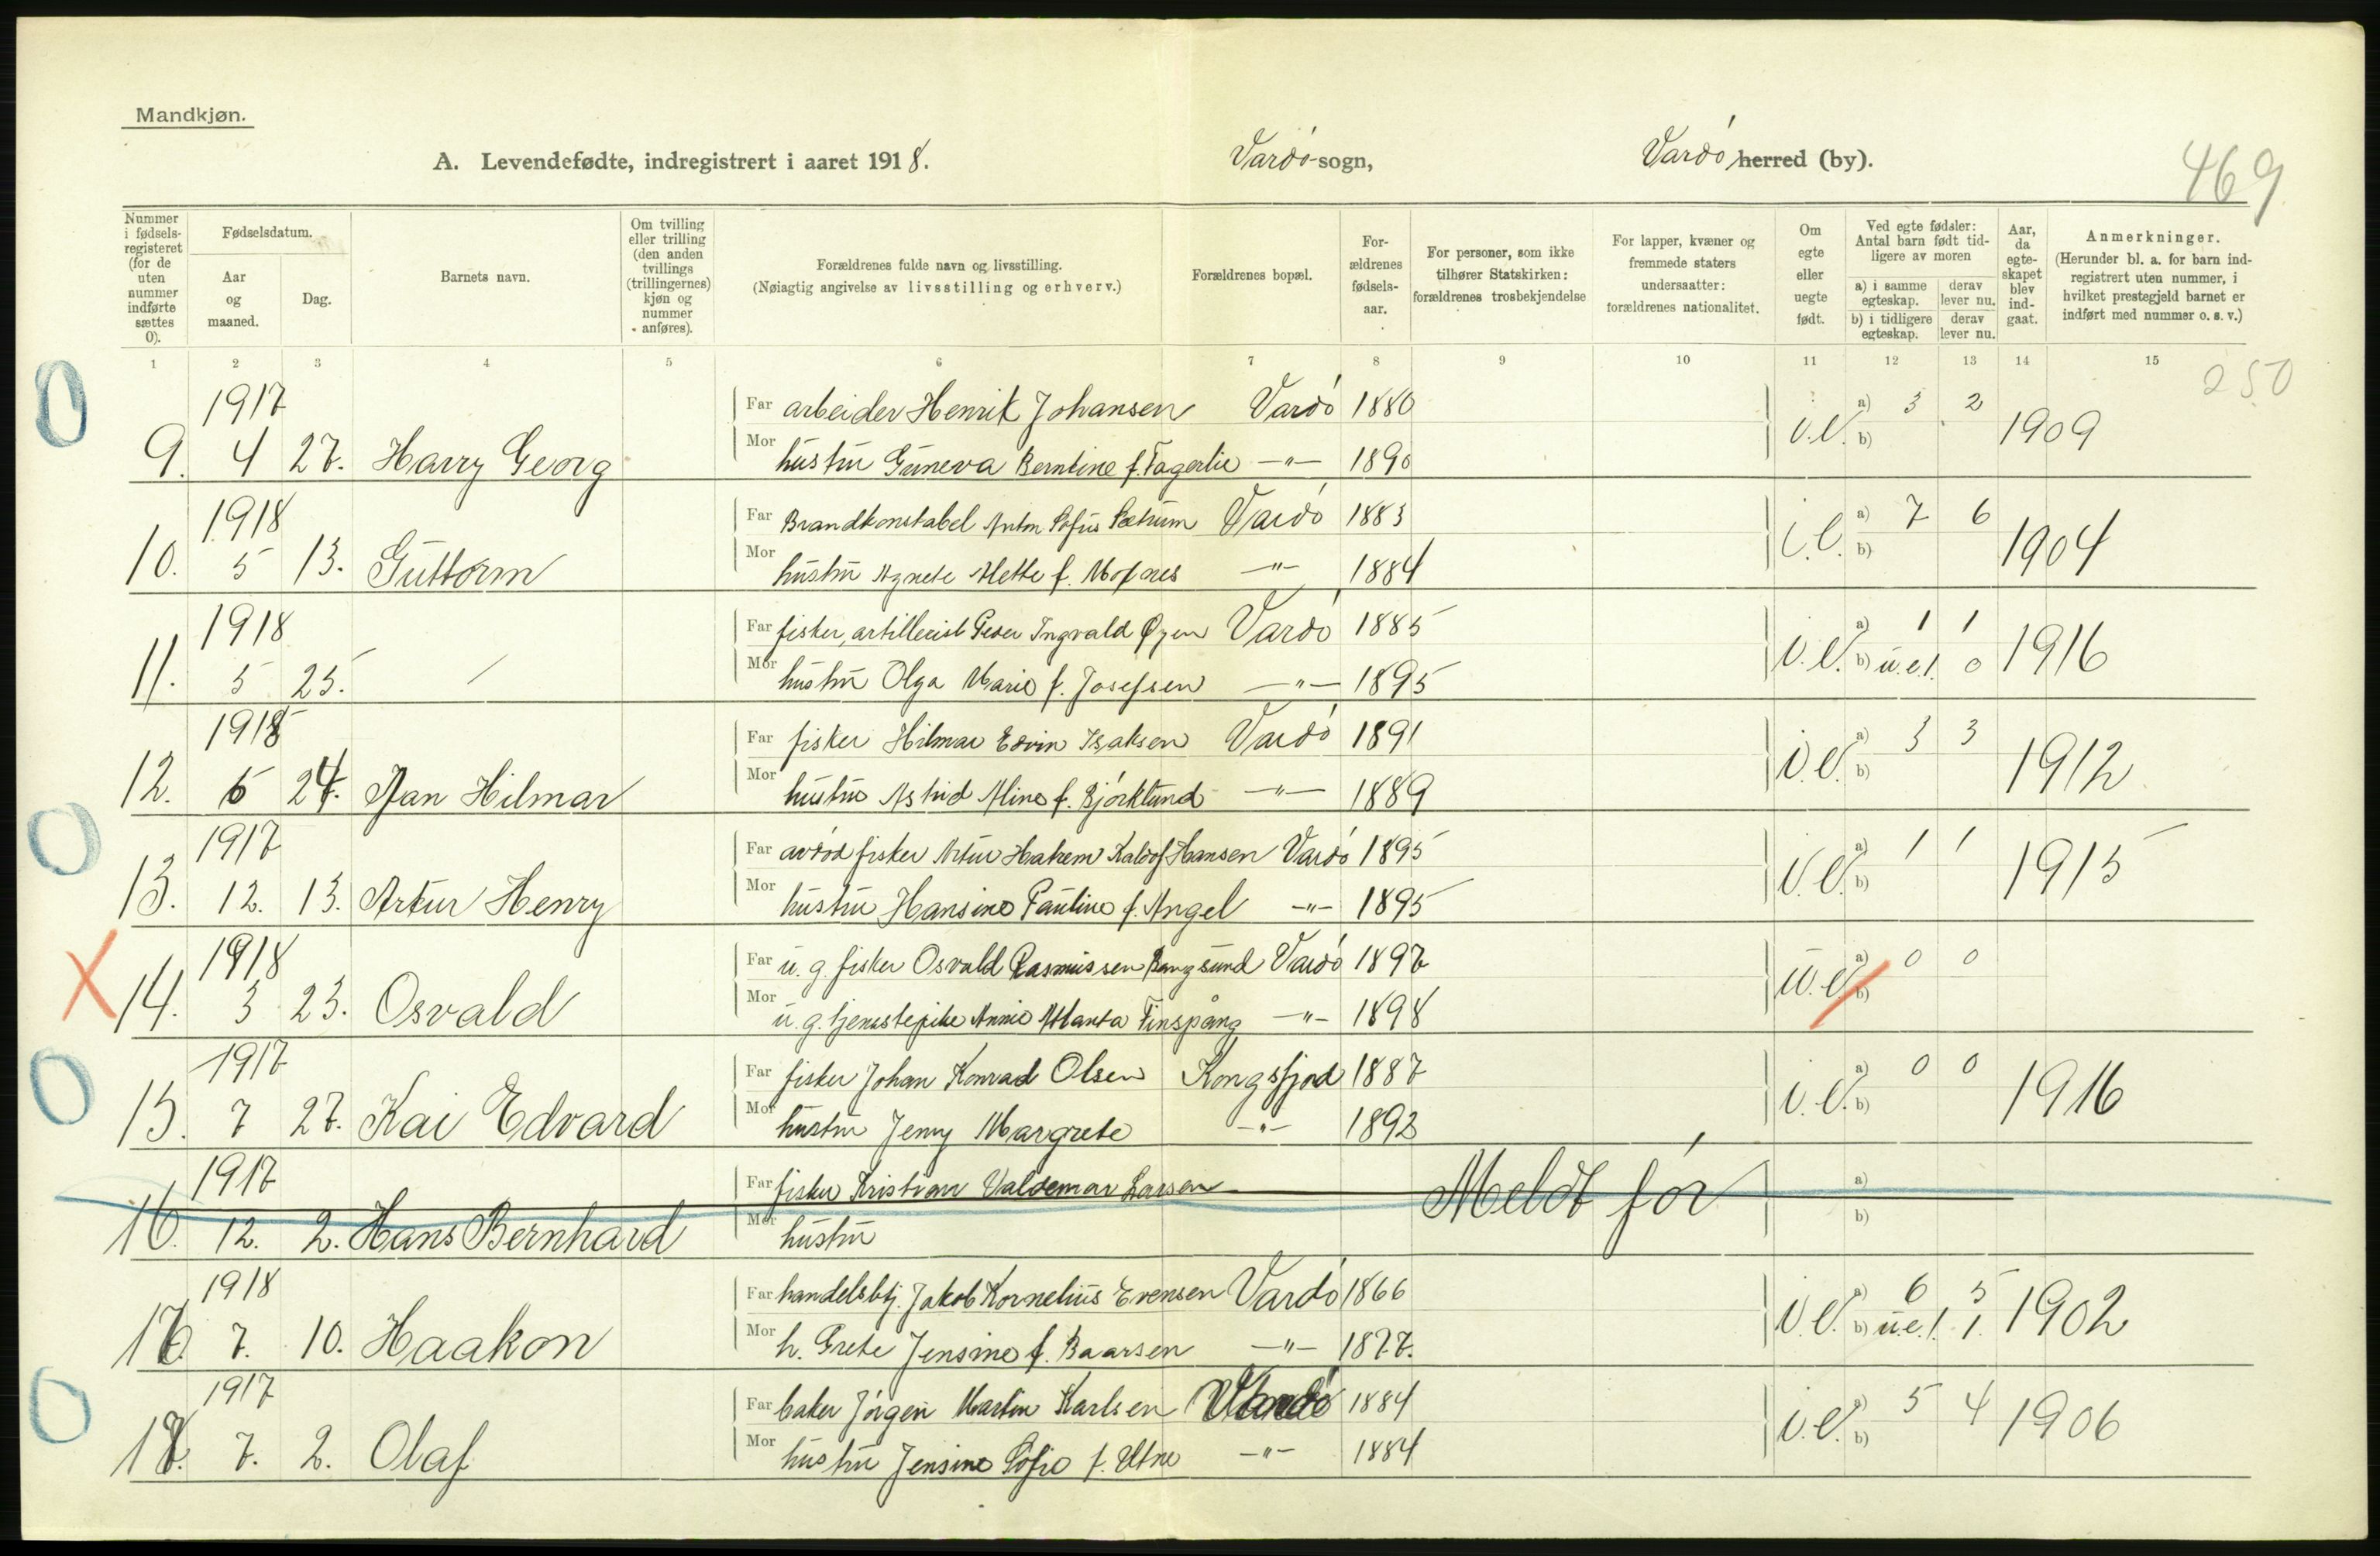 Mandkjøn.
A. Levendefødte, indregistrert i aaret 1918. Vardö sogn, Vardö herred (by).
469
Nummer i fødsels-registeret (for de uten nummer indførte sættes 0).
Fødselsdatum.
Aar og maaned.
Dag.
Barnets navn.
Om tvilling eller trilling (den anden tvillings (trillingernes) kjøn og nummer anføres).
Forældrenes fulde navn og livsstilling.
(Nøiagtig angivelse av livsstilling og erhverv.)
Forældrenes bopæl.
For-ældrenes fødsels-aar.
For personer, som ikke tilhører Statskirken: forældrenes trosbekjendelse
For lapper, kvæner og fremmede staters undersaatter: forældrenes nationalitet.
Om egte eller uegte født.
Ved egte fødaler: Antal barn født tid-ligere av moren
a) i samme egteskap. derav lever nu.
b) i tidligere egteskap. derav lever nu.
Aar, da egte-skapet blev ind-gaat.
Anmerkninger.
(Herunder bl. a. for barn ind-registrert uten nummer, i hvilket prestegjeld barnet er indført med nummer o. s. v.)
1 2 3 4 5 6 7 8 9 10 11 12 13 14 15
250
0
1917 Far arbeider Henrik Johansen Vardö 1880 a) 3 2
9. 4 27. Harry Georg Mor hustru Guneva Berntine f. Fagerlie -"- 1890 i.e. b) 1909
1918 Far Brandkonstabel Anton Sofus Sætrum Vardö 1883 a) 7 6
10. 5 13. Guttorm Mor hustru Agnete Mette f. Mofnes -"- 1884 i.e. b) 1904
1918 Far fisker, artillerist Peder Ingvald Øyen Vardö 1885 a) 1 1
11. 5 25. / Mor hustru Olga Marie f. Josefsen -"- 1895 i.e. b) u.e. 1. 0 1916
1918 Far fisker Hilmar Edvin Isaksen Vardö 1891 a) 3 3
12. 6 24. Jan Hilmar Mor hustru Astrid Aline f. Björklund -"- 1889 i.e. b) 1912
0
1917 Far avdöd fisker Artur Hakem Kaldof Hansen Vardö 1895 a) 1 1
13. 12. 13. Artur Henry Mor hustru Hansine Pauline f. Angel -"- 1895 i.e. b) 1915
X
1918 Far u. g. fisker Osvald Rasmussen Bangsund Vardö 1897 a) 0 0
14. 3 23. Osvald Mor u. g. tjenestepike Annie Atlanta Finspång -"- 1898 u.e. b)
0
1917 Far fisker Johan Konrad Olsen Kongsfjord 1887 a) 0 0
15. 7 27. Kai Edvard Mor hustru Jenny Margrete -"- 1892 i.e. b) 1916
1917 Far fisker Kristian Valdemar Larsen Meldt för a)
16. 12. 2. Hans Bernhard Mor hustru b)
1918 Far handelsbtj. Jakob Kornelius Evensen Vardö 1866 a) 6 5
16. 7. 10. Haakon Mor h. Grete Jensine f. Baarsen -"- 1877. i.e. b) u.e. 1. 1. 1902
0
1917 Far baker Jörgen Martin Karlsen Vardö 1884 a) 5 4
17. 7. 2. Olaf Mor hustru Jensine Sofie f. Utne -"- 1884 i.e. b) 1906